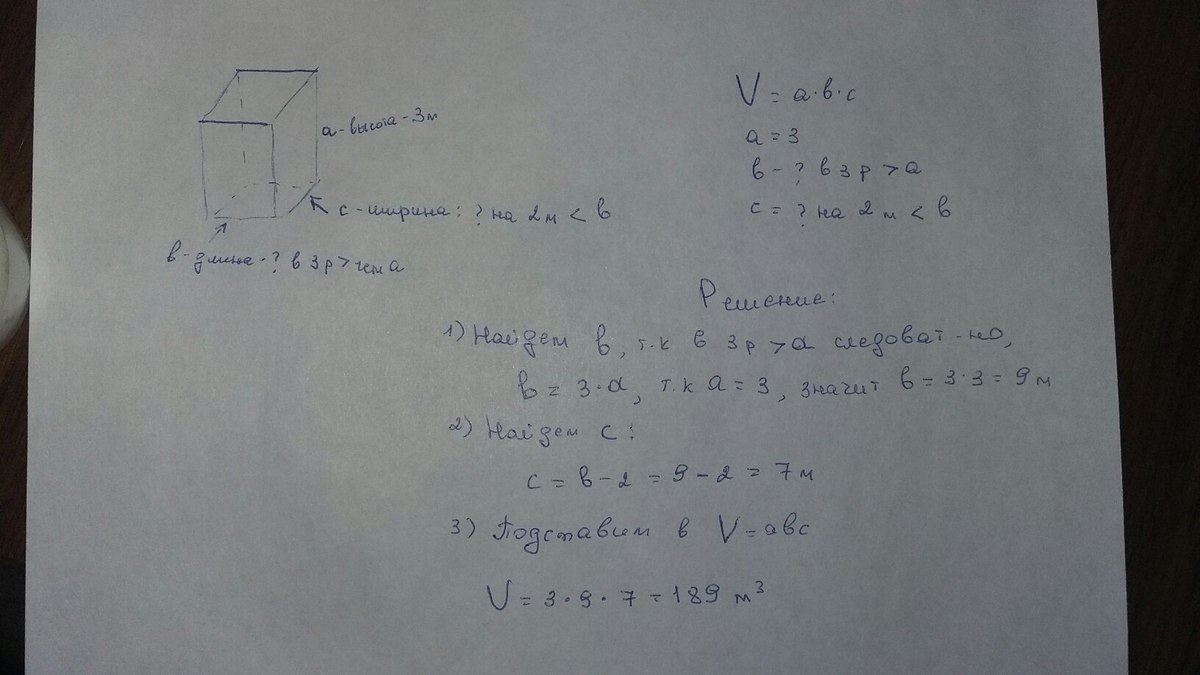 а-высота-3м
с-ширина: ? на 2м < в
в-длина-? в 3 р > чем а
V = а·в·с
а = 3
в - ? в 3 р > а
с = ? на 2 м < в
Решение:
1) Найдем в, т.к в 3 р > а следоват-но,
в = 3·а, т.к а = 3, значит в = 3·3 = 9 м
2) Найдем с:
с = в - 2 = 9 - 2 = 7 м
3) Подставим в V = авс
V = 3·9·7 = 189 м³